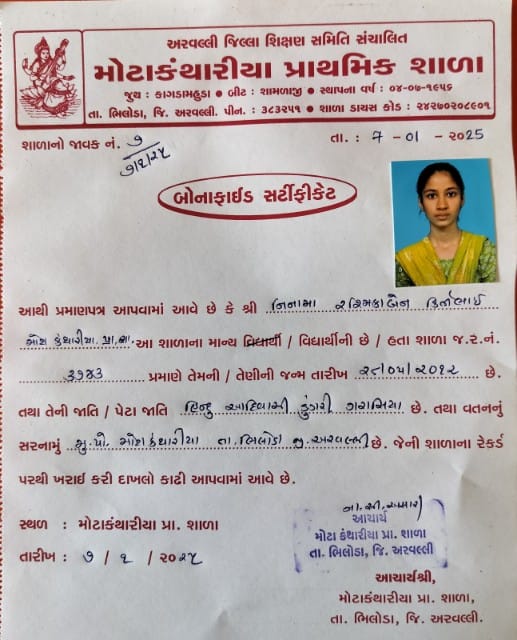 અરવલ્લી જિલ્લા શિક્ષણ સમિતિ સંચાલિત
મોટાકંથારીયા પ્રાથમિક શાળા
જુથ : કાગડામહુડા • બીટ : શામળાજી • સ્થાપના વર્ષ : ૦૪-૦૭-૧૯૫૬
તા. ભિલોડા, જિ. અરવલ્લી. પીન. : ૩૮૩૨૫૧ • શાળા ડાયસ કોડ : ૨૪૨૭૦૨૦૮૯૦૧
શાળાનો જાવક નં. ૭
તા. : 7 - ૦1 - ૨૦25
બોનાફાઈડ સર્ટીફીકેટ
આથી પ્રમાણપત્ર આપવામાં આવે છે કે શ્રી નિનામા રશ્મિકાબેન
મોટા કંથારીયા પ્રા.શા. આ શાળાના માન્ય વિદ્યાર્થી / વિદ્યાર્થીની છે / હતા શાળા જ.ર.નં.
૩૭૪૩ પ્રમાણે તેમની / તેણીની જન્મ તારીખ ૨૮/૦૫/૨૦૧૨ છે.
તથા તેની જાતિ / પેટા જાતિ હિન્દુ આદિવાસી ડુંગરી ગરાસિયા છે. તથા વતનનું
સરનામું મુ.પો. મોટાકંથારીયા તા.ભિલોડા જી.અરવલ્લી છે. જેની શાળાના રેકર્ડ
પરથી ખરાઈ કરી દાખલો કાઢી આપવામાં આવે છે.
સ્થળ : મોટાકંથારીયા પ્રા. શાળા
તારીખ : ૭ / ૧ / ૨૦૨૫
આચાર્ય
મોટા કંથારીયા પ્રા. શાળા
તા. ભિલોડા, જિ. અરવલ્લી
આચાર્યશ્રી,
મોટાકંથારીયા પ્રા. શાળા,
તા. ભિલોડા, જિ. અરવલ્લી.